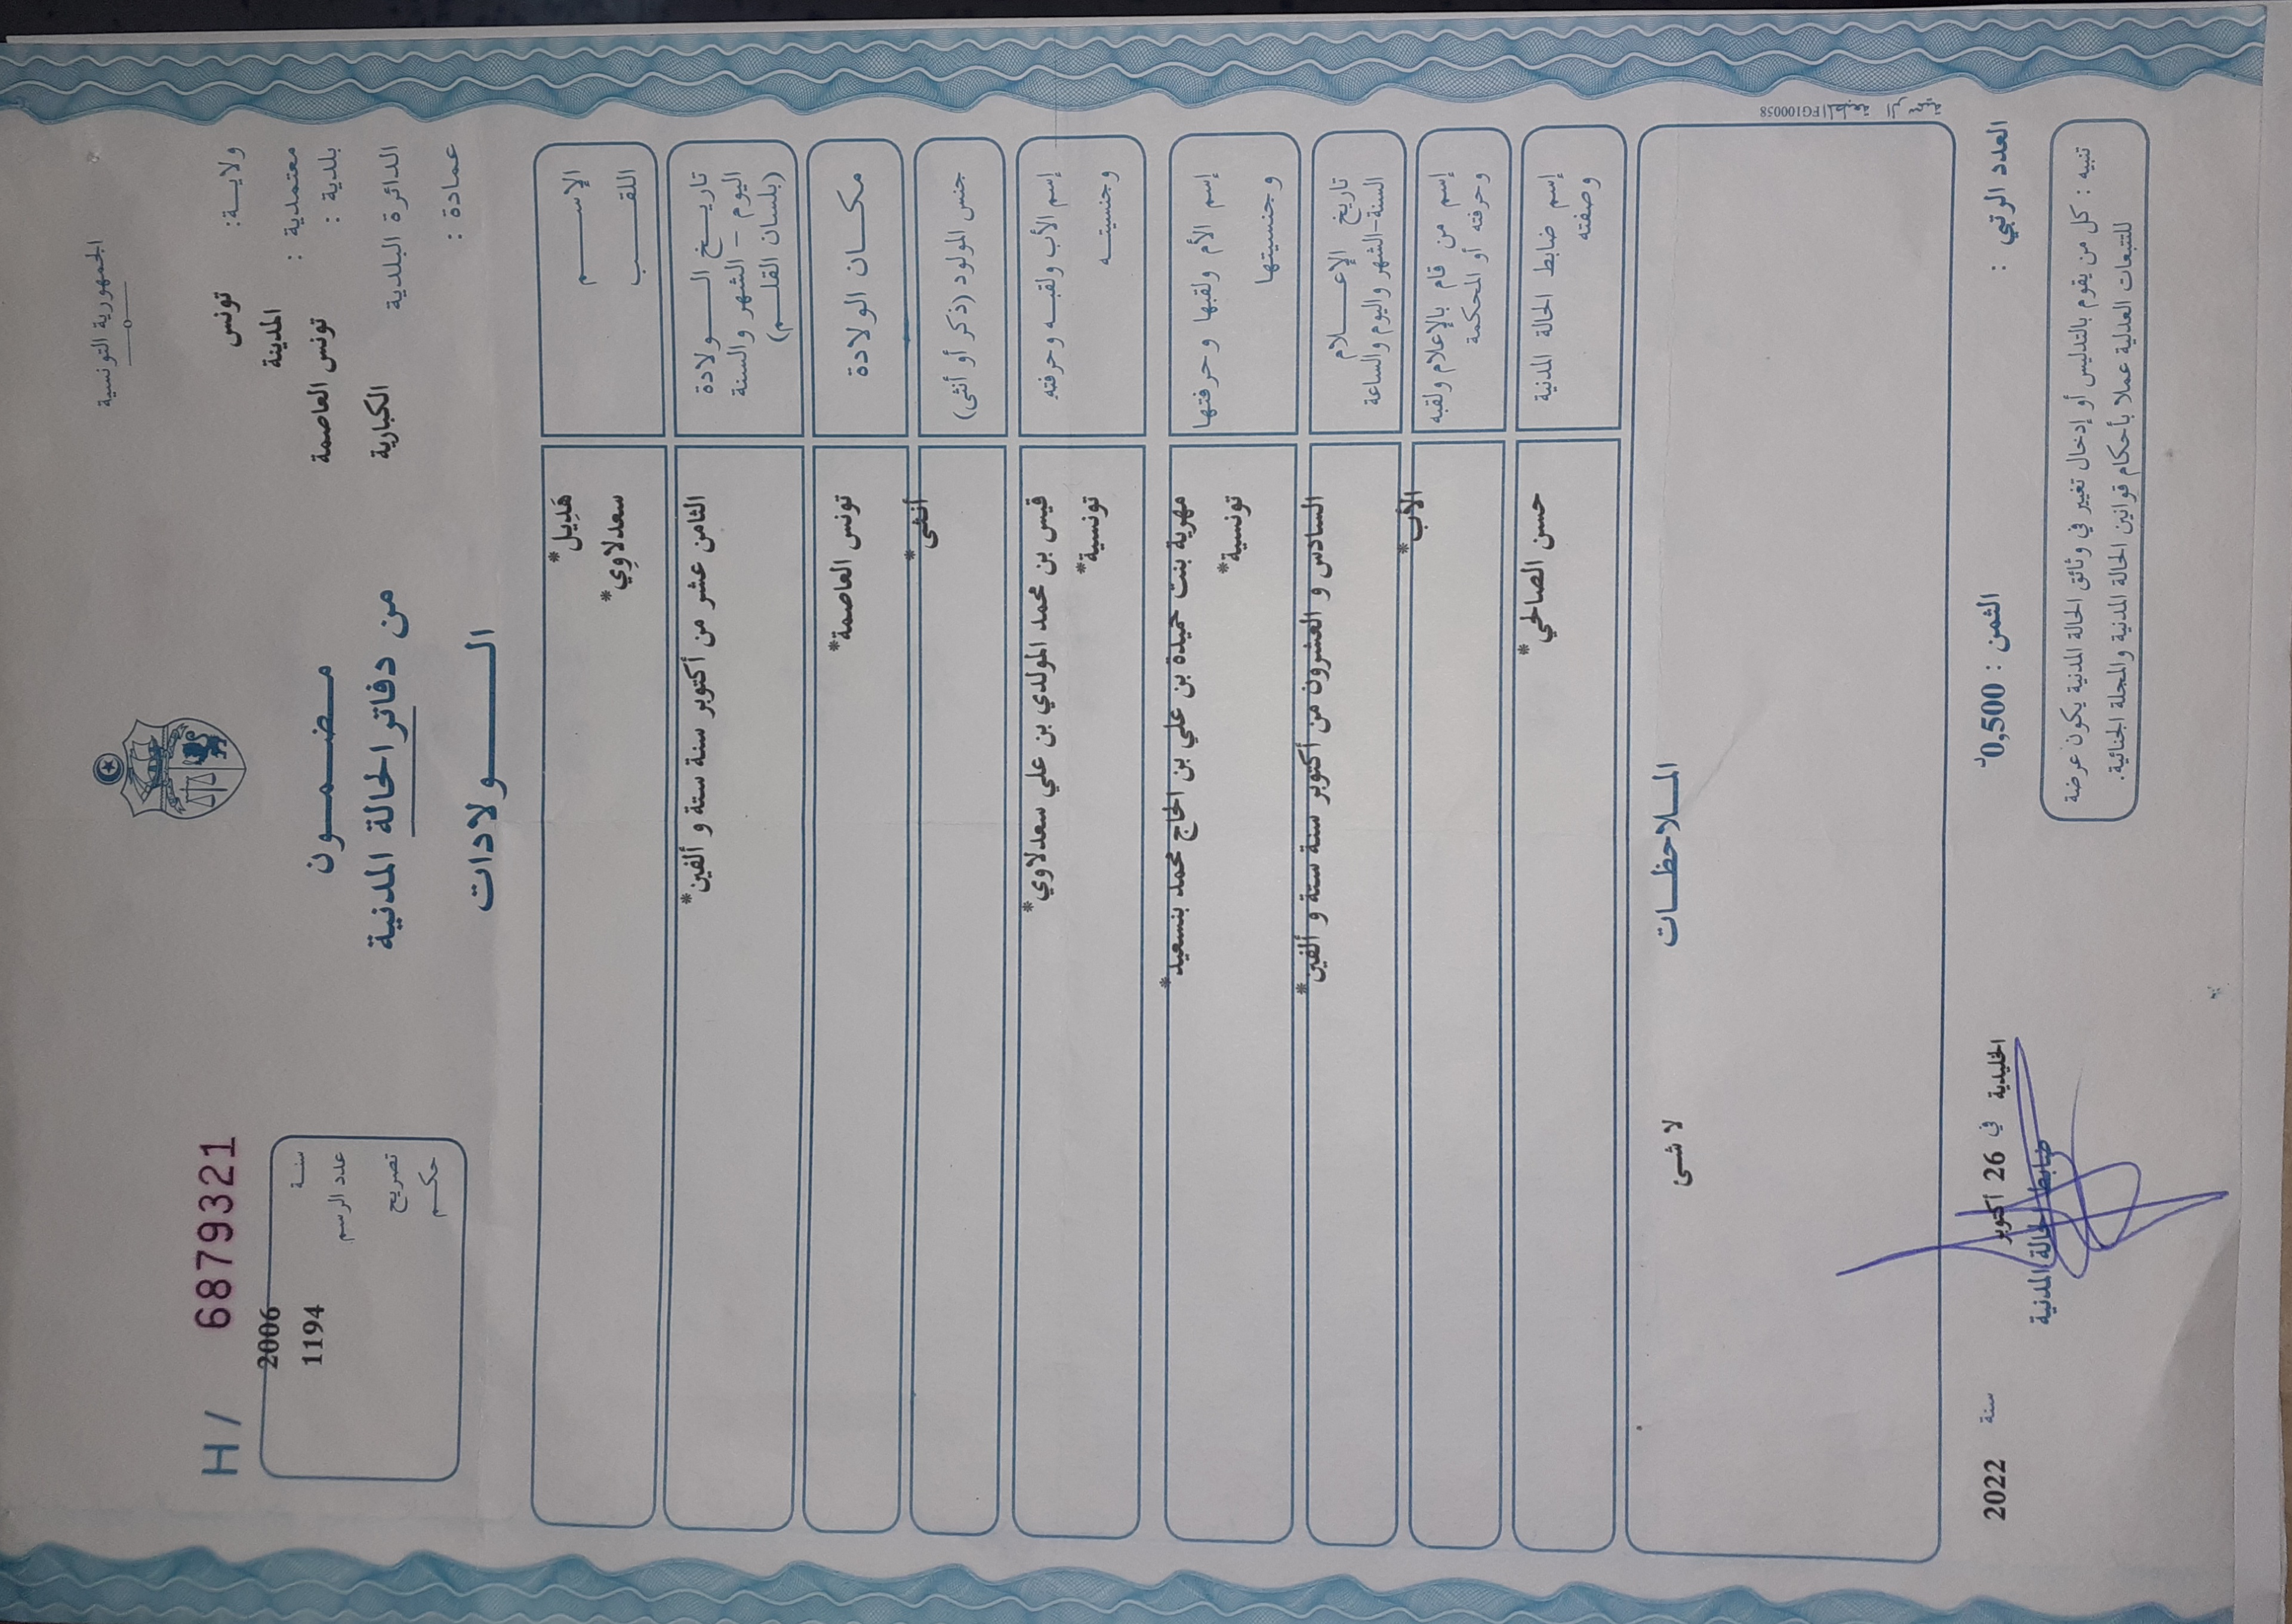 الجمهورية التونسية
ولاية: تونس
معتمدية : المدينة
بلدية : تونس العاصمة
الدائرة البلدية الكبارية
عمادة :
H/ 6879321
سنة 2006
عدد الرسم 1194
تصريح
حكم
مضمون
من دفاتر الحالة المدنية
الولادات
الإسم هَدِيل*
اللقب سعدلاوِي*
تاريخ الولادة
اليوم - الشهر والسنة
(بلسان القلم)
الثامن عشر من أكتوبر سنة ستة و ألفين*
مكان الولادة تونس العاصمة*
جنس المولود (ذكر أو أنثى) أنثى*
إسم الأب ولقبه وحرفته قيس بن محمد المولدي بن علي سعدلاوي*
وجنسيته تونسية*
إسم الأم ولقبها وحرفتها مهرية بنت حميدة بن علي بن الحاج محمد بنسعيد*
وجنسيتها تونسية*
تاريخ الإعلام
السنة-الشهر واليوم والساعة
السادس و العشرون من أكتوبر سنة ستة و ألفين*
إسم من قام بالإعلام ولقبه
وحرفته أو المحكمة
الأب*
إسم ضابط الحالة المدنية
وصفته
حسن الصالحي*
الملاحظات
لا شئ
FG100058
العدد الرتبي :
الثمن : 0,500د
الخليدية في 26 اكتوبر سنة 2022
ضابط الحالة المدنية
تنبيه : كل من يقوم بالتدليس أو إدخال تغيير في وثائق الحالة المدنية يكون عرضة
للتتبعات العدلية عملا بأحكام قوانين الحالة المدنية والمجلة الجنائية.